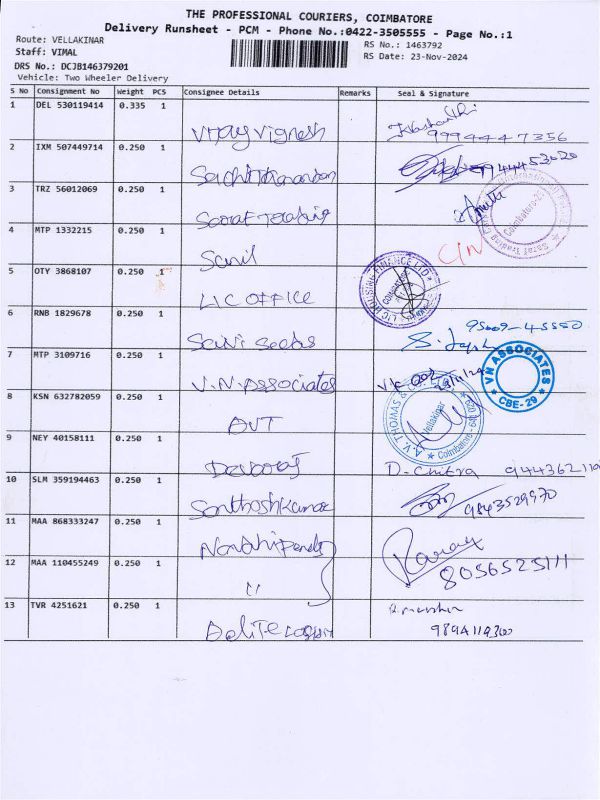 THE PROFESSIONAL COURIERS, COIMBATORE
Delivery Runsheet - PCM - Phone No.:0422-3505555 - Page No.:1
Route: VELLAKINAR
RS No.: 1463792
Staff: VIMAL
RS Date: 23-Nov-2024
DRS No.: DCJB146379201
Vehicle: Two Wheeler Delivery
S No Consignment No Weight PCS Consignee Details Remarks Seal & Signature
1 DEL 530119414 0.335 1
Vijay Vignesh 9994447356
2 IXM 507449714 0.250 1
3 TRZ 56012069 0.250 1
4 MTP 1332215 0.250 1
Sunil C/N
5 OTY 3868107 0.250 1
LIC OFFICE
LIC HOUSING FINANCE LTD
6 RNB 1829678 0.250 1
95009-45550
7 MTP 3109716 0.250 1
V.N. Associates
VN ASSOCIATES
CBE-29
8 KSN 632782059 0.250 1
AVT
A.V. THOMAS &
Vellakinar
Coimbatore
9 NEY 40158111 0.250 1
Devaraj D-Chitra
10 SLM 359194463 0.250 1
Santhosh Kumar 9843529970
11 MAA 868333247 0.250 1
8056525111
12 MAA 110455249 0.250 1
"
13 TVR 4251621 0.250 1
Delite